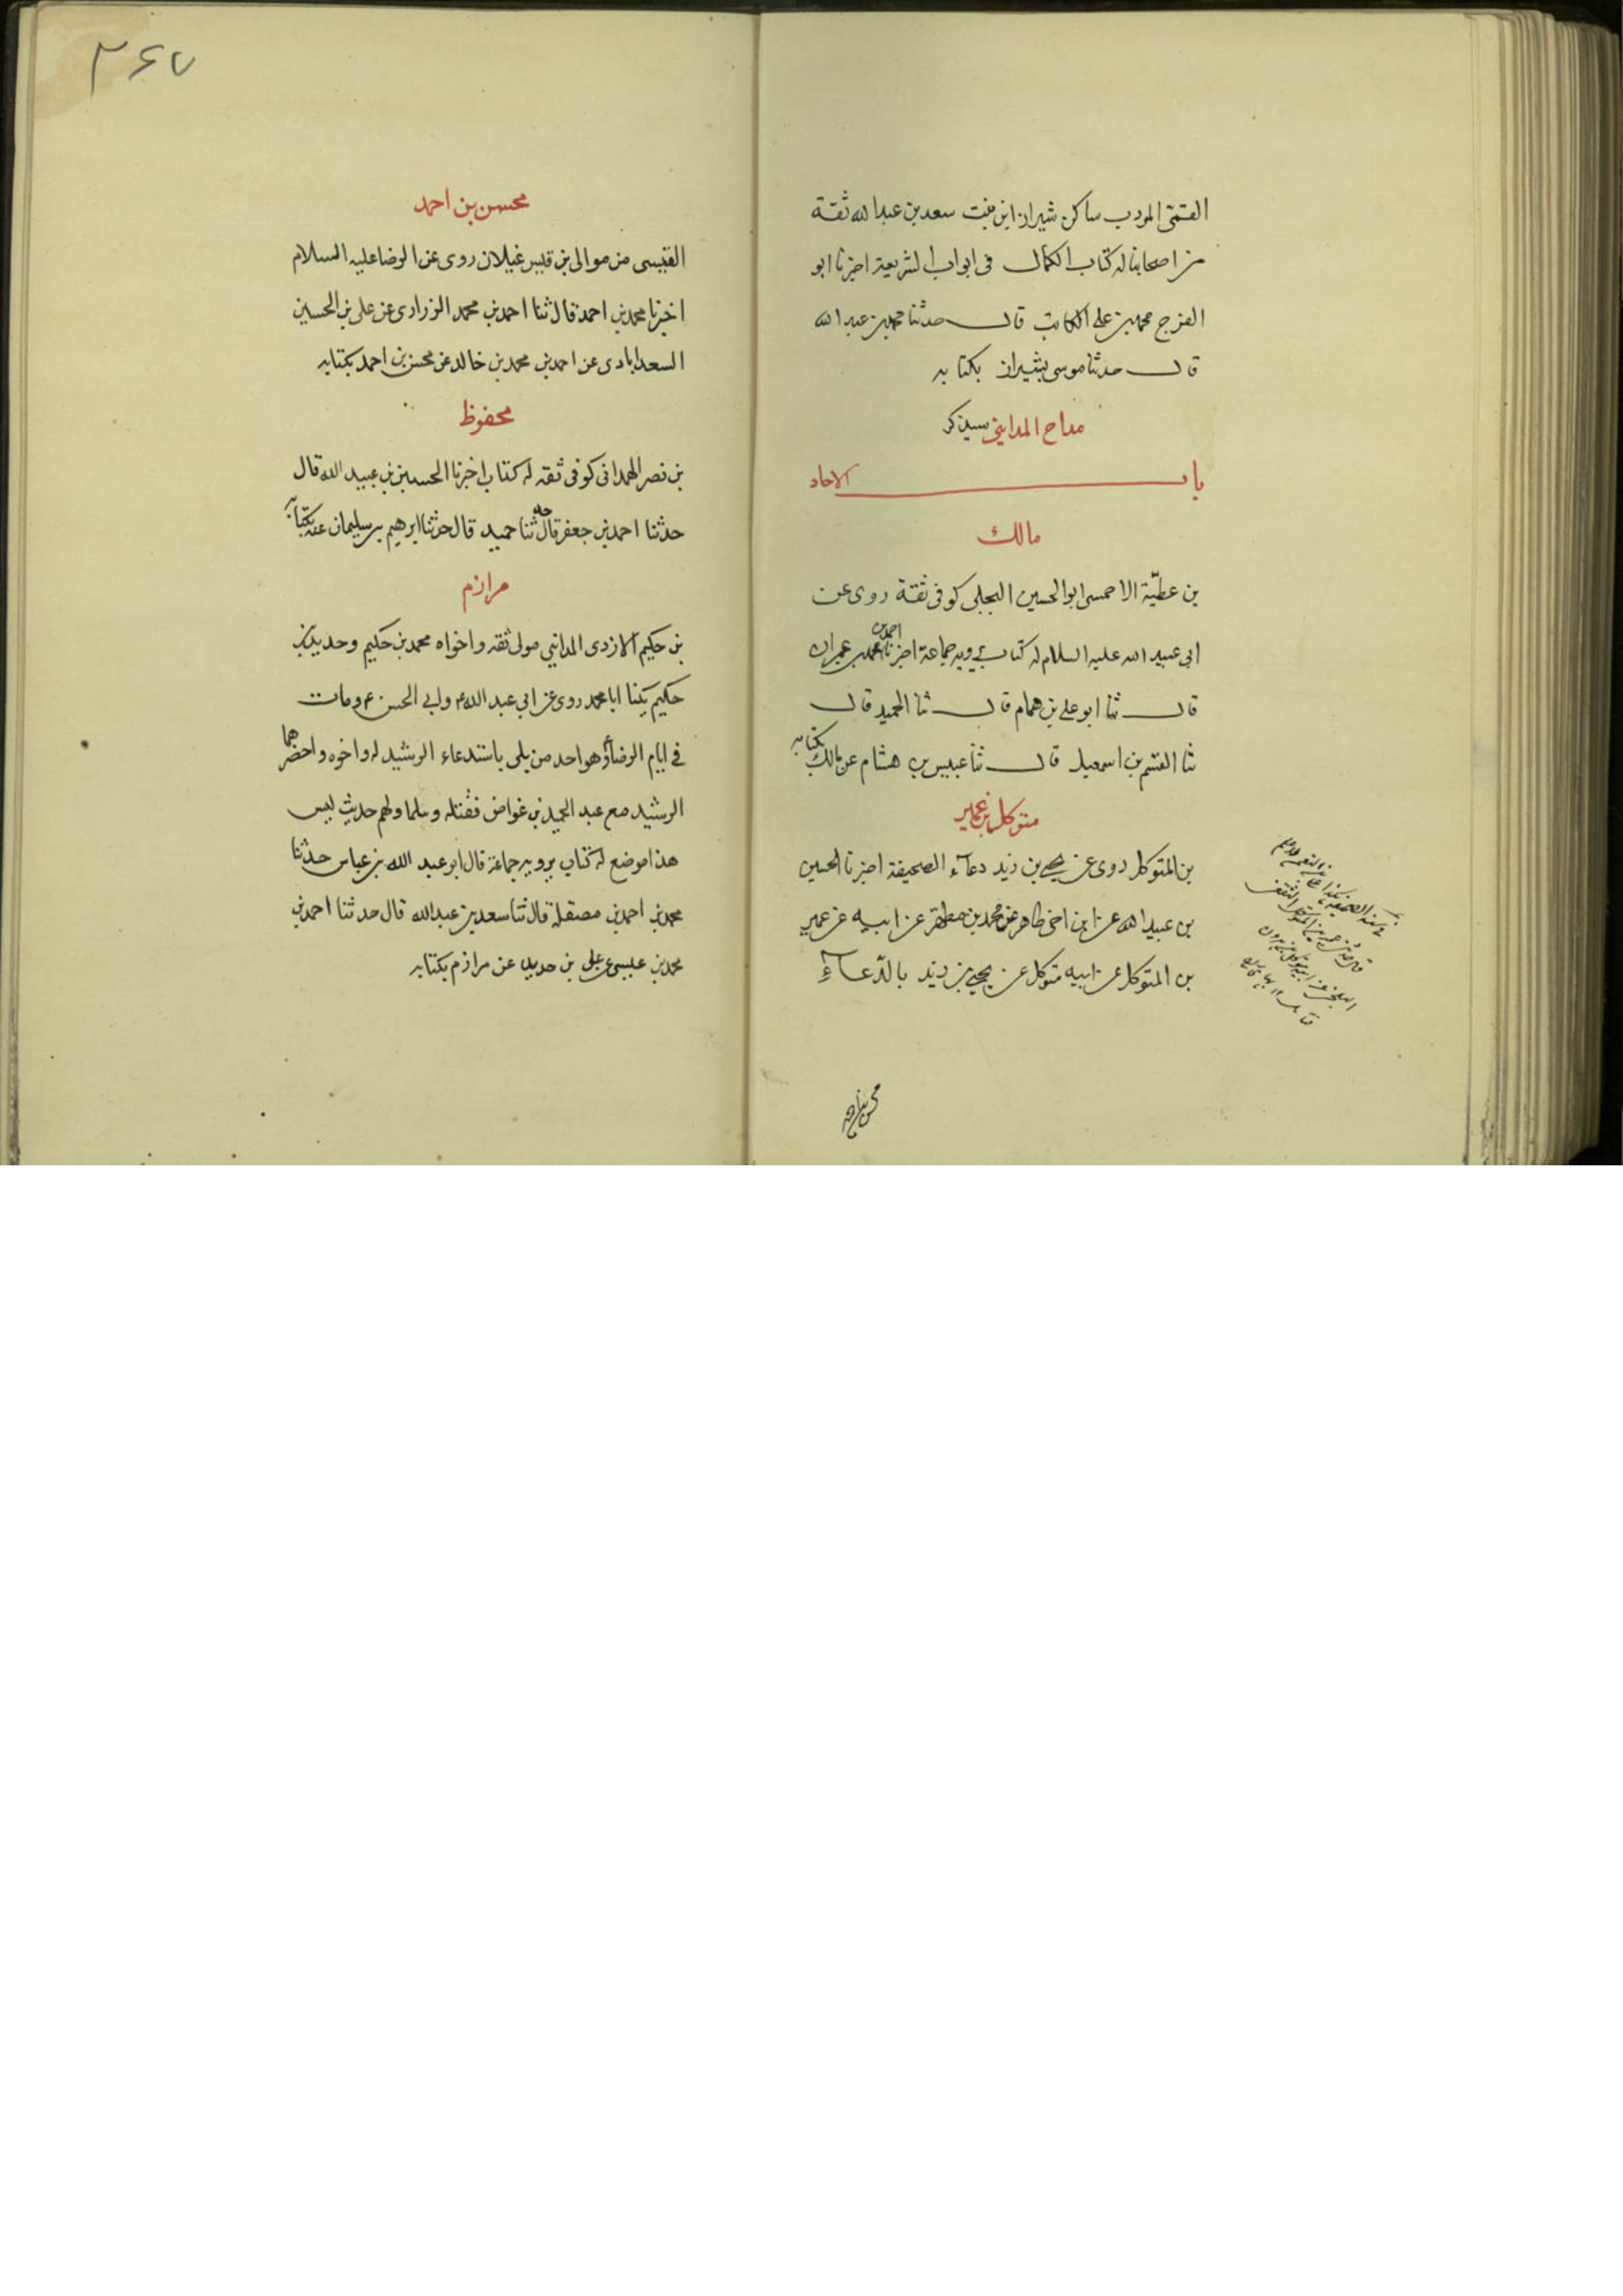 القمى المودب ساكن شيراز ابن بنت سعد بن عبدالله ثقة
من اصحابنا له كتاب الكمال فى ابواب الشريعة اخبرنا ابو
الفرج محمد بن على الكاتب قال حدثنا محمد بن عبدالله
قال حدثنا موسى بشيراز بكتابه
مداح المداينى سيذكر
باب الاحاد
مالك
بن عطيّة الاحمسى ابوالحسين البجلى كوفى ثقة روى عن
ابى عبيد الله عليه السلام له كتاب يرويه جماعة اخبرنا احمد بن محمد بن عمران
قال ثنا ابو على بن همام قال ثنا الحميد قال
ثنا القسم بن اسمعيل قال ثنا عبيس بن هشام عن مالك بكتابه
متوكل بن عمير
بن المتوكل روى عن يحيى بن زيد دعاء الصحيفة اخبرنا الحسين
بن عبيد الله عن ابن اخى طاهر عن محمد بن مطهر عن ابيه عن عمير
بن المتوكل عن ابيه متوكل عن يحيى بن زيد بالدّعاء
محسن بن احمد
٣۶٧
محسن بن احمد
القيسى من موالى بن قيس غيلان روى عن الرضا عليه السلام
اخبرنا محمد بن احمد قال ثنا احمد بن محمد الزرارى عن على بن الحسين
السعدابادى عن احمد بن محمد بن خالد عن محسن بن احمد بكتابه
محفوظ
بن نصر الهمدانى كوفى ثقه له كتاب اخبرنا الحسين بن عبيد الله قال
حدثنا احمد بن جعفر قال ثنا حميد قال حدثنا ابرهيم بن سليمان عنه بكتابه
مرازم
بن حكيم الازدى المداينى مولى ثقه واخواه محمد بن حكيم وحديد بن
حكيم يكنا ابا محمد روى عن ابي عبد الله م وابي الحسن م ومات
فى ايام الرضا ع وهو احد من بلى باستدعاء الرشيد له واخوه واحضرهما
الرشيد مع عبد الحميد بن غواض فقتله وسلما ولهم حديث ليس
هذا موضع له كتاب يرويه جماعة قال ابو عبد الله بن عباس حدثنا
محمد بن احمد بن مصقلة قال ثنا سعد بن عبدالله قال حدثنا احمد بن
محمد بن عيسى عن على بن حديد عن مرازم بكتابه